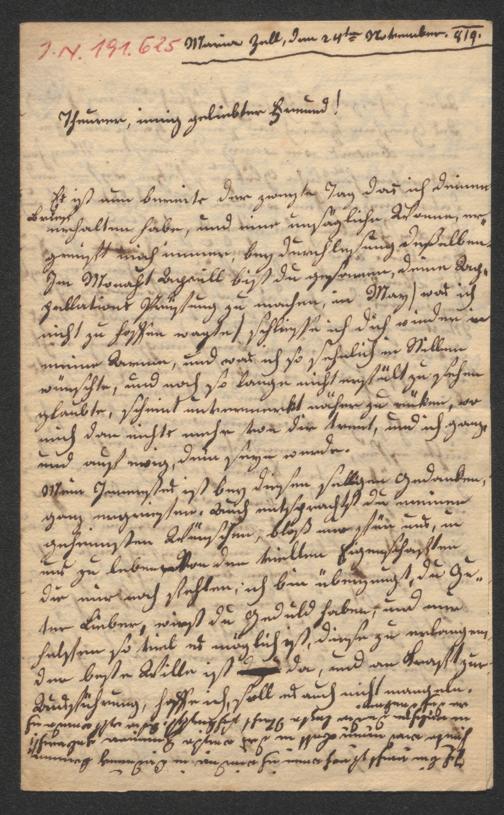 I.N. 191.625
Maria Zell, den 24ten November. 819.
Theurer, innig geliebter Freund!
Es ist nun bereits der zweyte Tag das ich deinen
Brief erhalten habe, und eine unsägliche Wonne, er-
greift mich immer, bey durchlesung desselben.
Im Monath Aprill bist du gesonnen, deine Ap-
pellations Prüfung zu machen, im May was ich
nicht zu hoffen wagte, schliesse ich dich wieder in
meine Arme, und was ich so sehnlich im Stillen
wünschte, und noch so lange nicht erfüllt zu sehen
glaubte, scheint unvermerkt näher zu rüken, wo
mich dan nichts mehr von dir trent, und ich ganz
und auf ewig, dein seyn werde.
Mein Innerstes ist bey diesem seeligen Gedanken,
ganz ergriffen. Auch entsprachst du meinen
geheimsten Wünschen, bloß nur für uns, in
uns zu leben. Von den vielen Eigenschaften
die mir noch fehlen, ich bin überzeugt, du Gu-
ter Lieber, wirst du Geduld haben, und mir
helfen so viel es möglich ist, diese zu erlangen,
der beste Wille ist da, und an Kraft zur
Ausführung, hoffe ich, soll es auch nicht mangeln.